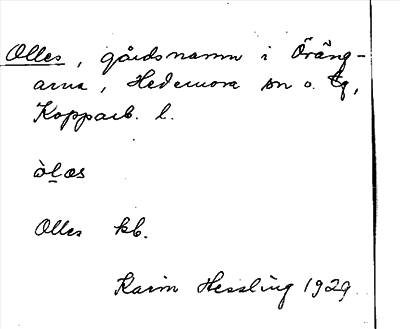 Olles, gårdsnamn i Öräng-
arna, Hedemora sn o. tg,
Kopparb. l.
òl̠æs
Olles kb.
Karin Hessling 1929